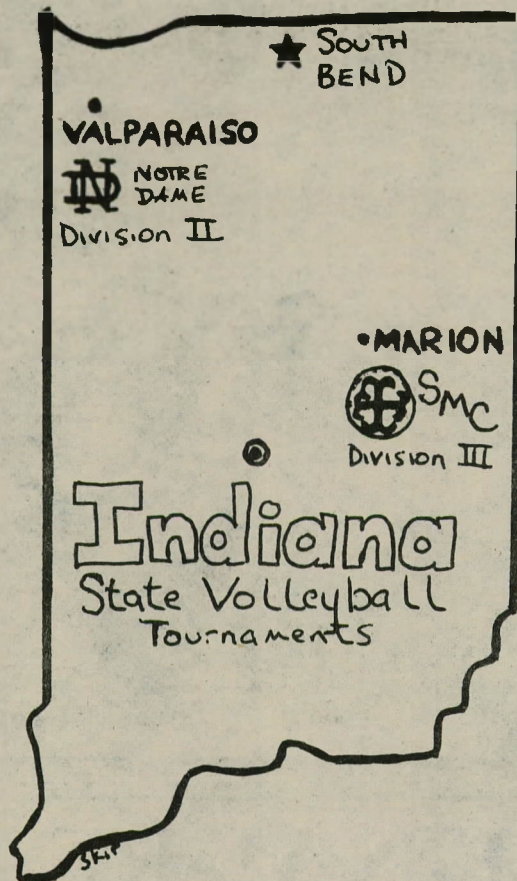 SOUTH
BEND
VALPARAISO
ND NOTRE
DAME
Division II
MARION
SMC
Division III
Indiana
State Volleyball
Tournaments
Skip